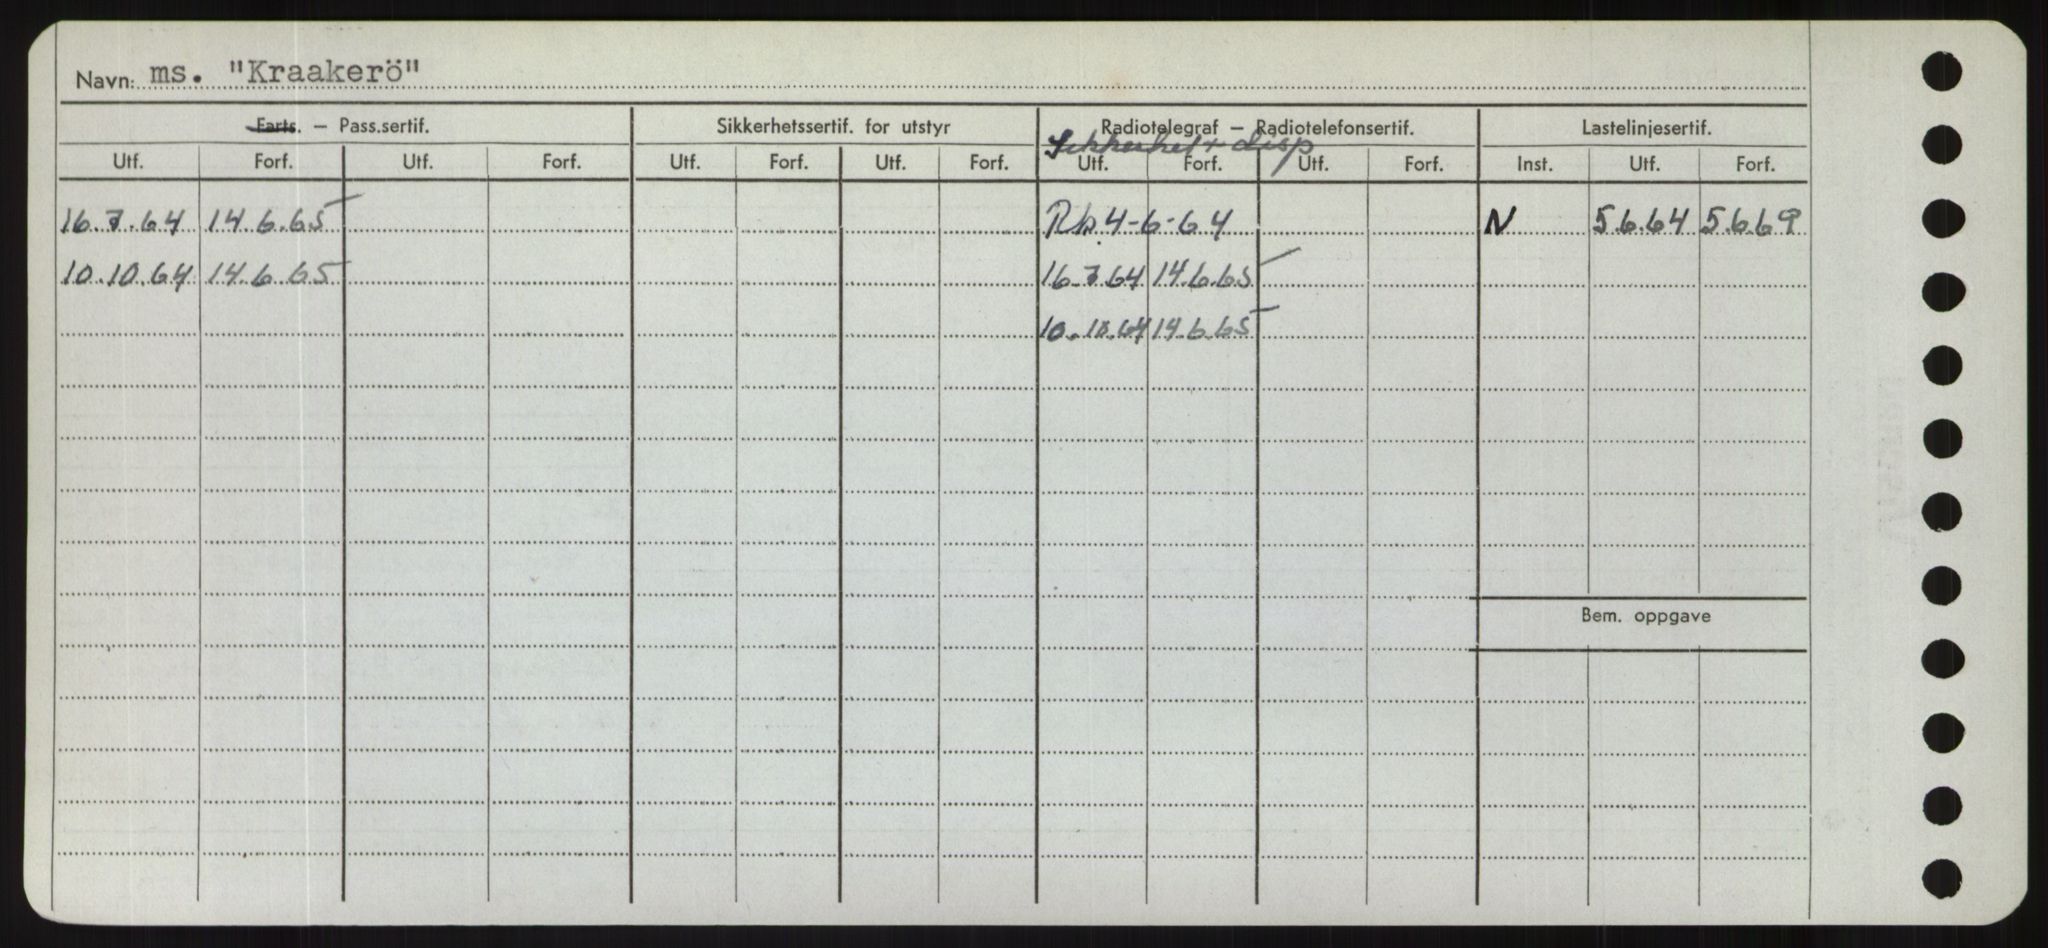 Navn: ms. "Kraakerö"
Farts. – Pass.sertif. Sikkerhetssertif. for utstyr Radiotelegraf – Radiotelefonsertif. Lastelinjesertif.
Sikkerhet + disp
Utf. Forf. Utf. Forf. Utf. Forf. Utf. Forf. Utf. Forf. Utf. Forf. Inst. Utf. Forf.
16.7.64 14.6.65 Rb. 4-6-64 N 5.6.64 5.6.69
10.10.64 14.6.65 16.7.64 14.6.65
10.10.64 14.6.65
Bem. oppgave